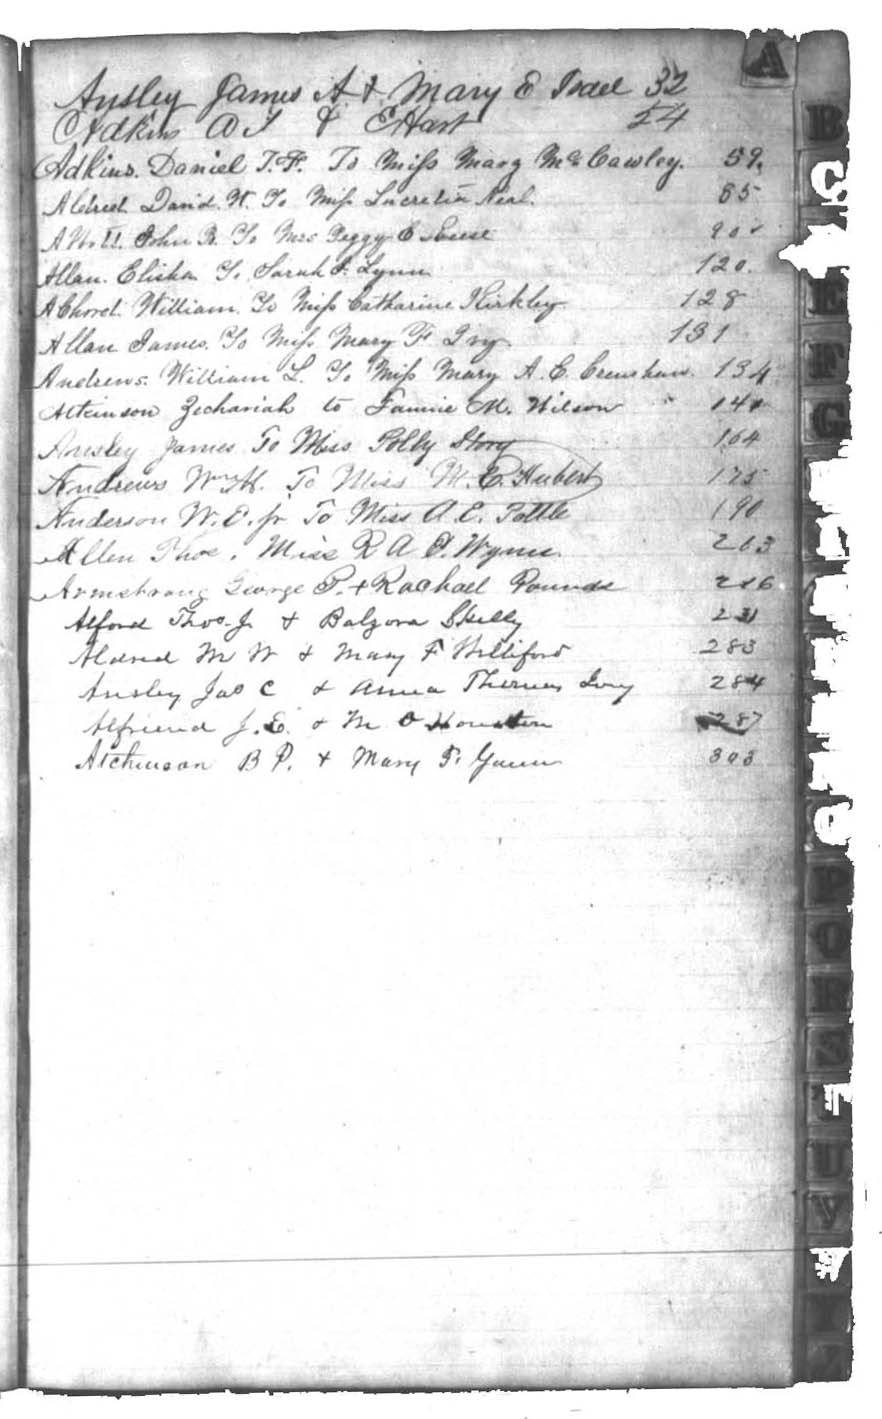 A
Ansley James A & Mary E Isael 32
Adkins A J & E Hart 24
Adkins. Daniel T. F. To Miss Mary McCawley. 59.
Aldred. David. W. To Miss Lucretia Neal. 85
John R. To Mrs Peggy E 90
Allan. Elisha To Sarah F. Lynn 120.
AChord. William. To Miss Catharine Kirkley 128
Allan James. To Miss Mary F Ivy 131
Andrews. William L. To Miss Mary A. C. Crenshaw. 134
Atkinson Zechariah to Fannie M. Wilson 141
Ansley James To Miss Polly Story 164
Andrews Wm H. To Miss M. E. Hubert 175
Anderson W. E. Jr To Miss A. E. Pottle 190
Allen Thos. Miss R A P. Wynn. 263
Armstrong George P. & Rachael Pounds 216
Alford Thos. J. & Balzora Skelly 231
Aldred M W & Mary F Williford 283
Ansley Jas C & Anna Thomas Ivy 284
Alfriend J. E. & M O Houston 287
Atchinson B P. & Mary F. Gunn 303
B
C
E
F
G
P
Q
R
S
T
U
V